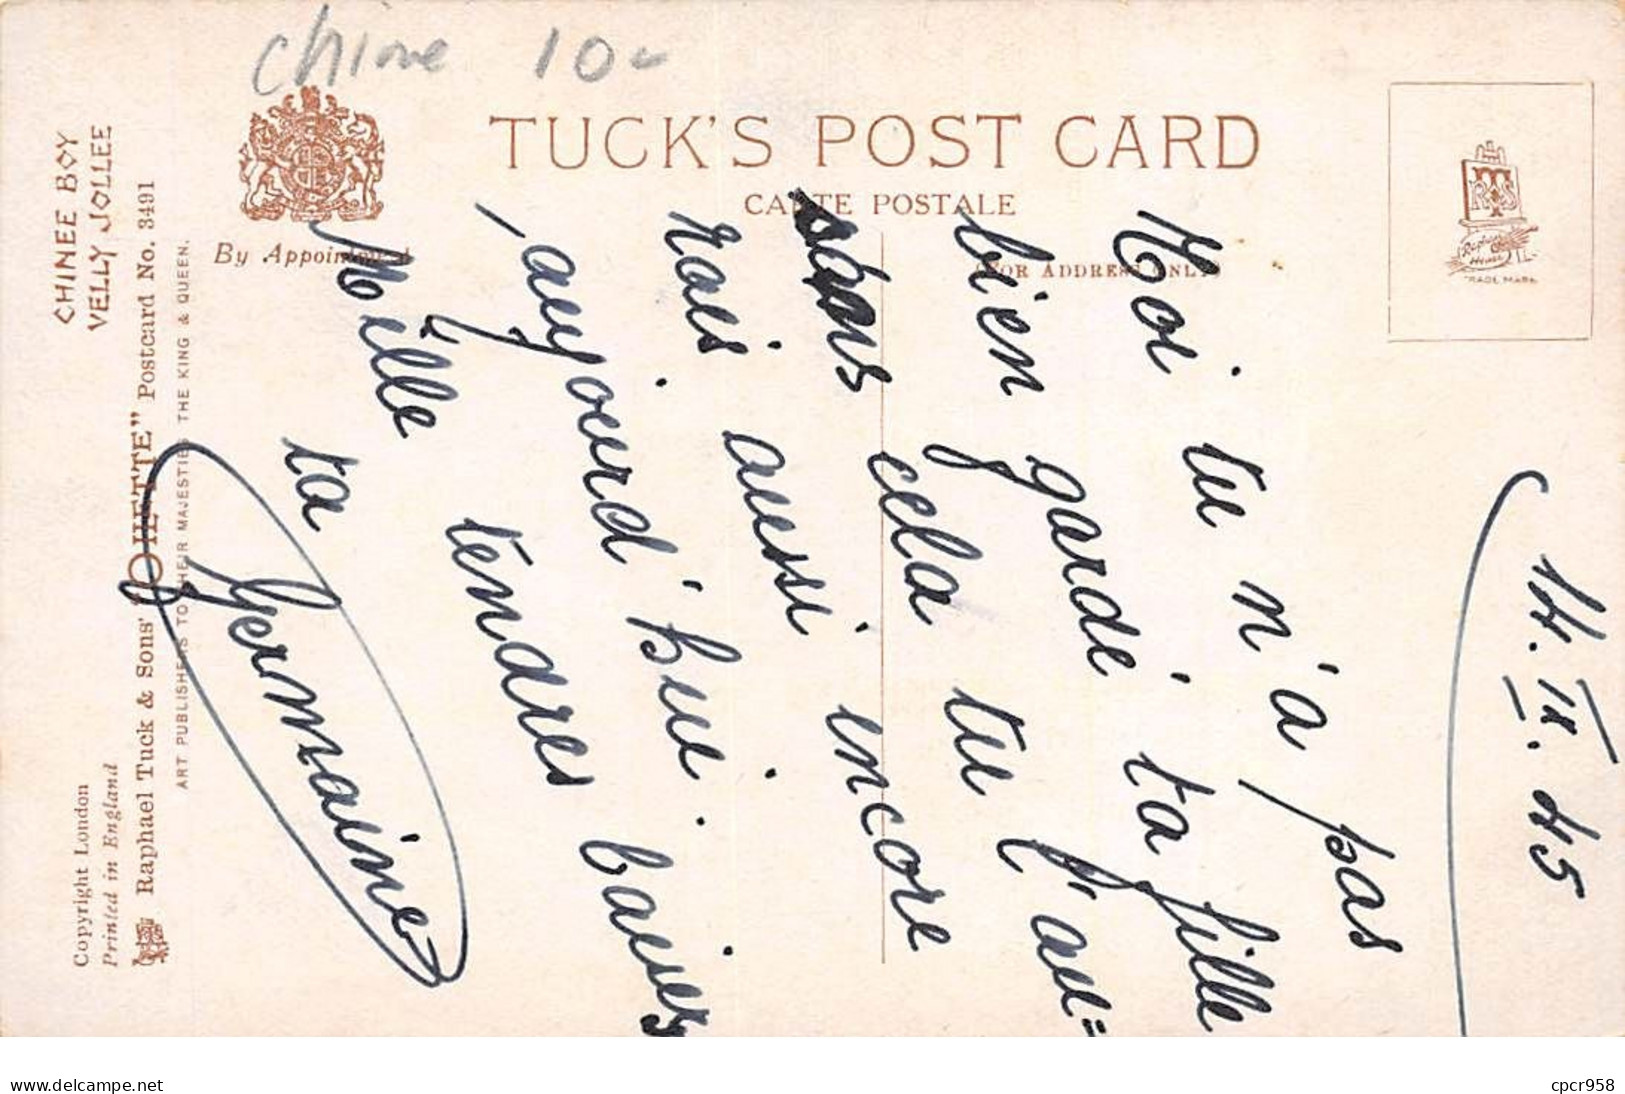 chine 10-
TUCK'S POST CARD
CARTE POSTALE
(FOR ADDRESS ONLY)
By Appointment
RADE MARK
CHINEE BOY
VELLY JOLLEE
Copyright London
Printed in England
Raphael Tuck & Sons' "OILETTE" Postcard No. 3491
ART PUBLISHERS TO THEIR MAJESTIES THE KING & QUEEN.
14. IX. 45
Moi tu m'a pas
bien gardé ta fille
sans cela tu l'au=
rais aussi encore
aujourd'hui.
Mille tendres baisers
ta
Germaine
cpcr958